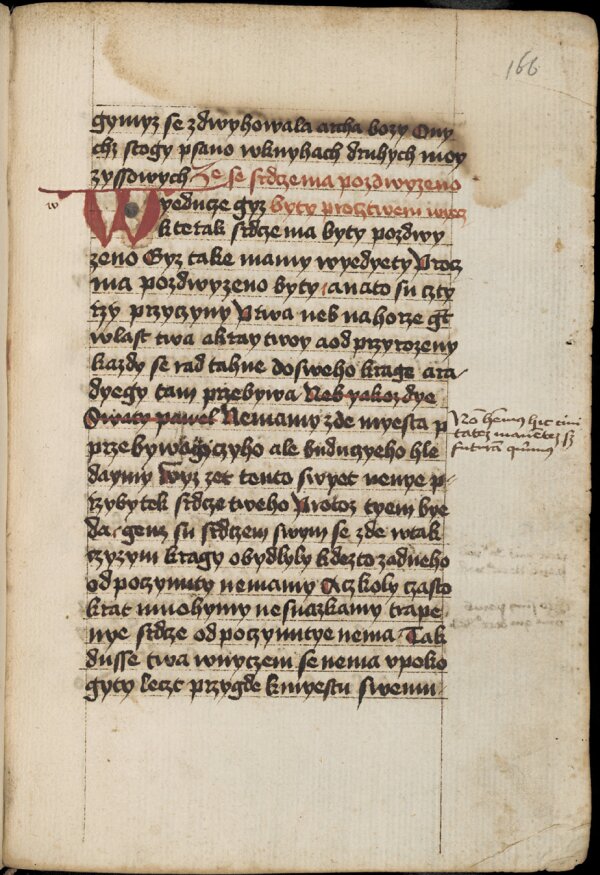 166
gymyz se zdwyhowala archa bozy Ony
chz stogy psano wknyhach druhych moy
zyssowych Ze se srdcze ma pozdwyzeno
w
Wyeducze gyz byty prosztrzem wyecz
k tetak srdcze ma byty pozdwy
zeno Gyz take mamy wyedyety Procz
ma pozdwyzeno byty anato su czty
rzy przyczyny Prwa neb nahorze gt
wlast twa a kray twoy a od przyrozeny
kazdy se rad tahne do sweho krage a ra
dyegy tam przebywa Neb yakozdye
Swaty pawel Nemamy zde myesta p
przebywagyczyho ale buduczyeho hle
dayme Wyz zet tento swyet nenye p
rzybytek srdcze tweho Protoz tyem bye
da genz su srdczem swym se zde wtak
czyzym kragy obydlyly kdezto zadneho
odpoczynuty nemamy Aczkoly czasto
krat mnohymy nesnazkamy trape
nye srdcze odpoczynutye nema Tak
dusse twa wnyczem se nema vpoko
gyty leczt przygde k myestu swemu
No hemus hic ciui
tatez manetez sz
futura qrimus